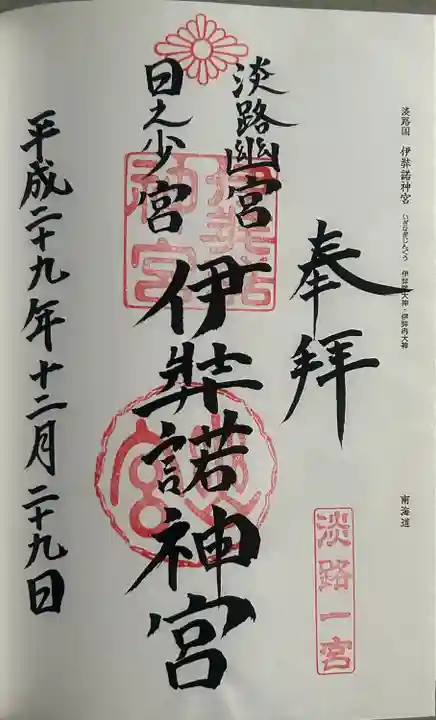 淡路国 伊弉諾神宮 いざなぎじんぐう 伊弉諾大神・伊弉冉大神
南海道
奉拝
淡路一宮
淡路幽宮
日之少宮
伊弉諾神宮
伊弉諾神宮
平成二十九年十二月二十九日